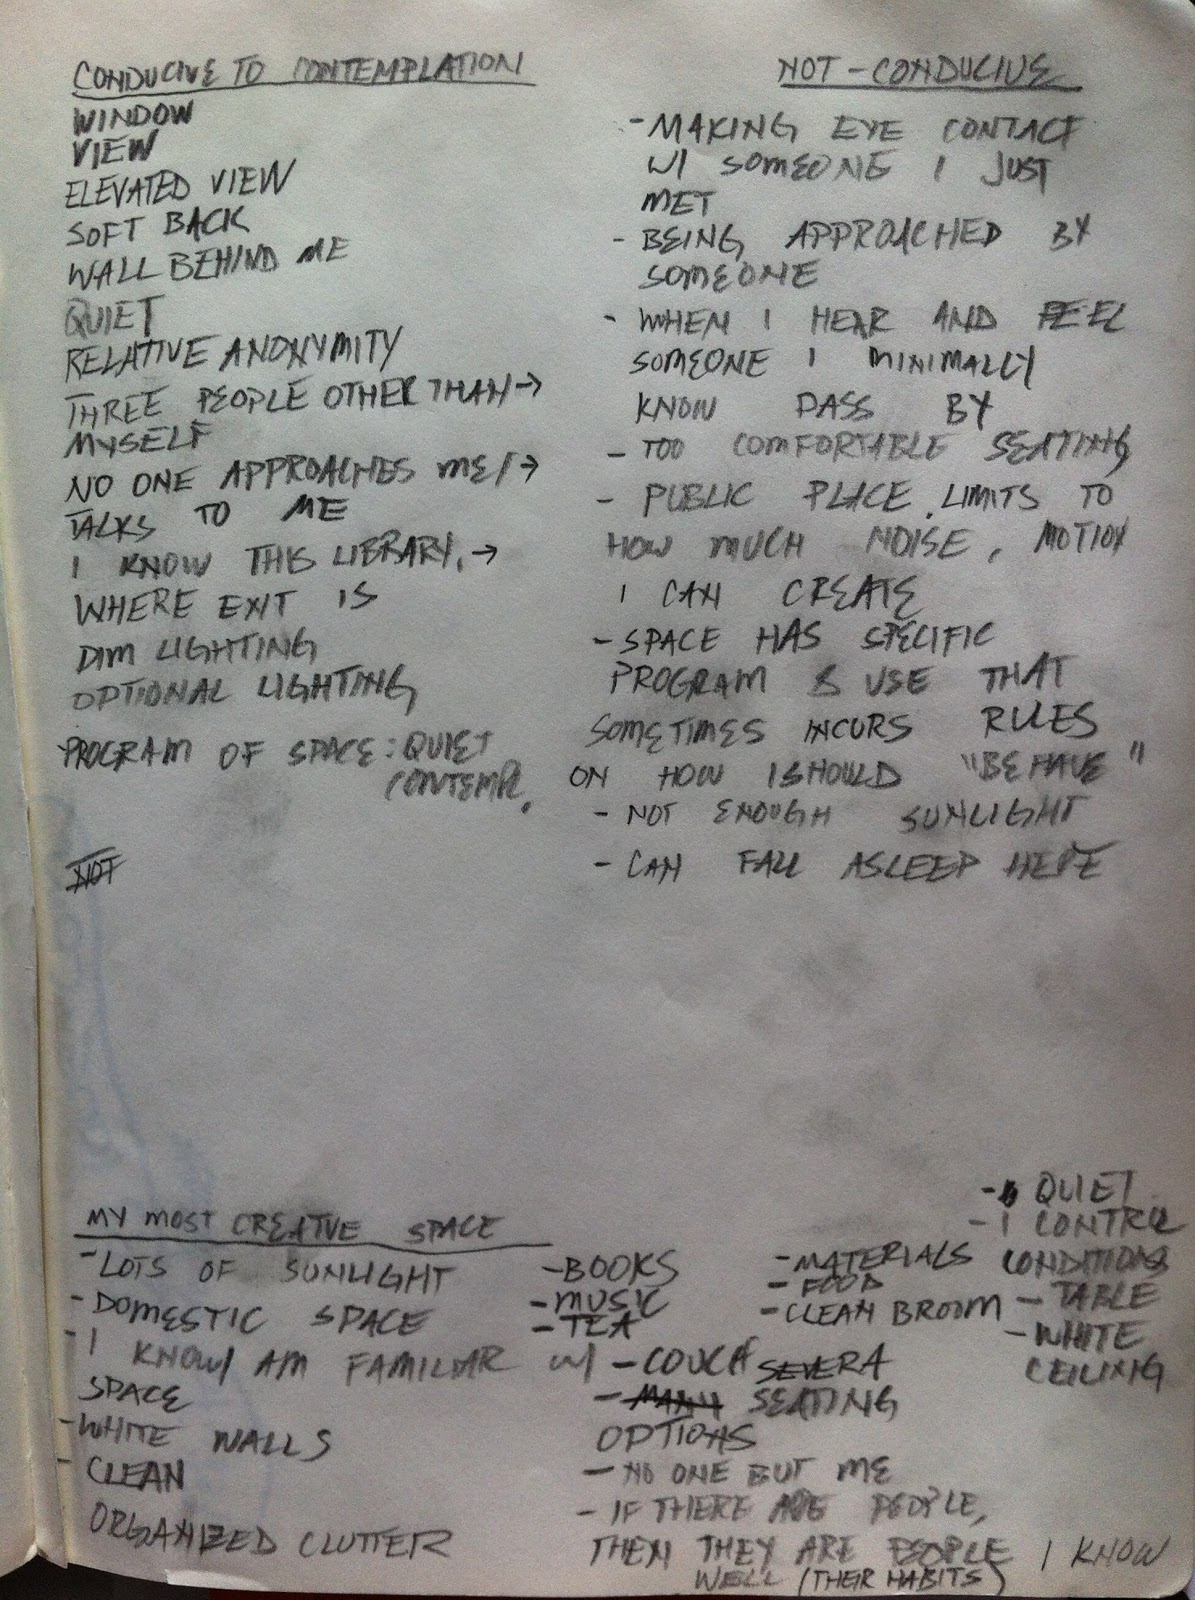 CONDUCIVE TO CONTEMPLATION
WINDOW
VIEW
ELEVATED VIEW
SOFT BACK
WALL BEHIND ME
QUIET
RELATIVE ANONYMITY
THREE PEOPLE OTHER THAN →
MYSELF
NO ONE APPROACHES ME / →
TALKS TO ME
I KNOW THIS LIBRARY. →
WHERE EXIT IS
DIM LIGHTING
OPTIONAL LIGHTING
PROGRAM OF SPACE: QUIET
CONTEMPL.
NOT
NOT-CONDUCIVE
- MAKING EYE CONTACT
W/ SOMEONE I JUST
MET
- BEING APPROACHED BY
SOMEONE
- WHEN I HEAR AND FEEL
SOMEONE I MINIMALLY
KNOW PASS BY
- TOO COMFORTABLE SEATING
- PUBLIC PLACE. LIMITS TO
HOW MUCH NOISE, MOTION
I CAN CREATE
- SPACE HAS SPECIFIC
PROGRAM & USE THAT
SOMETIMES INCURS RULES
ON HOW I SHOULD "BEHAVE"
- NOT ENOUGH SUNLIGHT
- CAN FALL ASLEEP HERE
MY MOST CREATIVE SPACE
- LOTS OF SUNLIGHT
- DOMESTIC SPACE
- I KNOW/ AM FAMILIAR W/
SPACE
- WHITE WALLS
- CLEAN
ORGANIZED CLUTTER
- BOOKS
- MUSIC
- TEA
- COUCH SEVERA
- MANY SEATING
OPTIONS
- NO ONE BUT ME
- IF THERE ARE PEOPLE,
THEN THEY ARE PEOPLE I KNOW
WELL (THEIR HABITS)
- MATERIALS
- FOOD
- CLEAN BROOM
- QUIET
- I CONTROL
CONDITIONS
- TABLE
- WHITE
CEILING